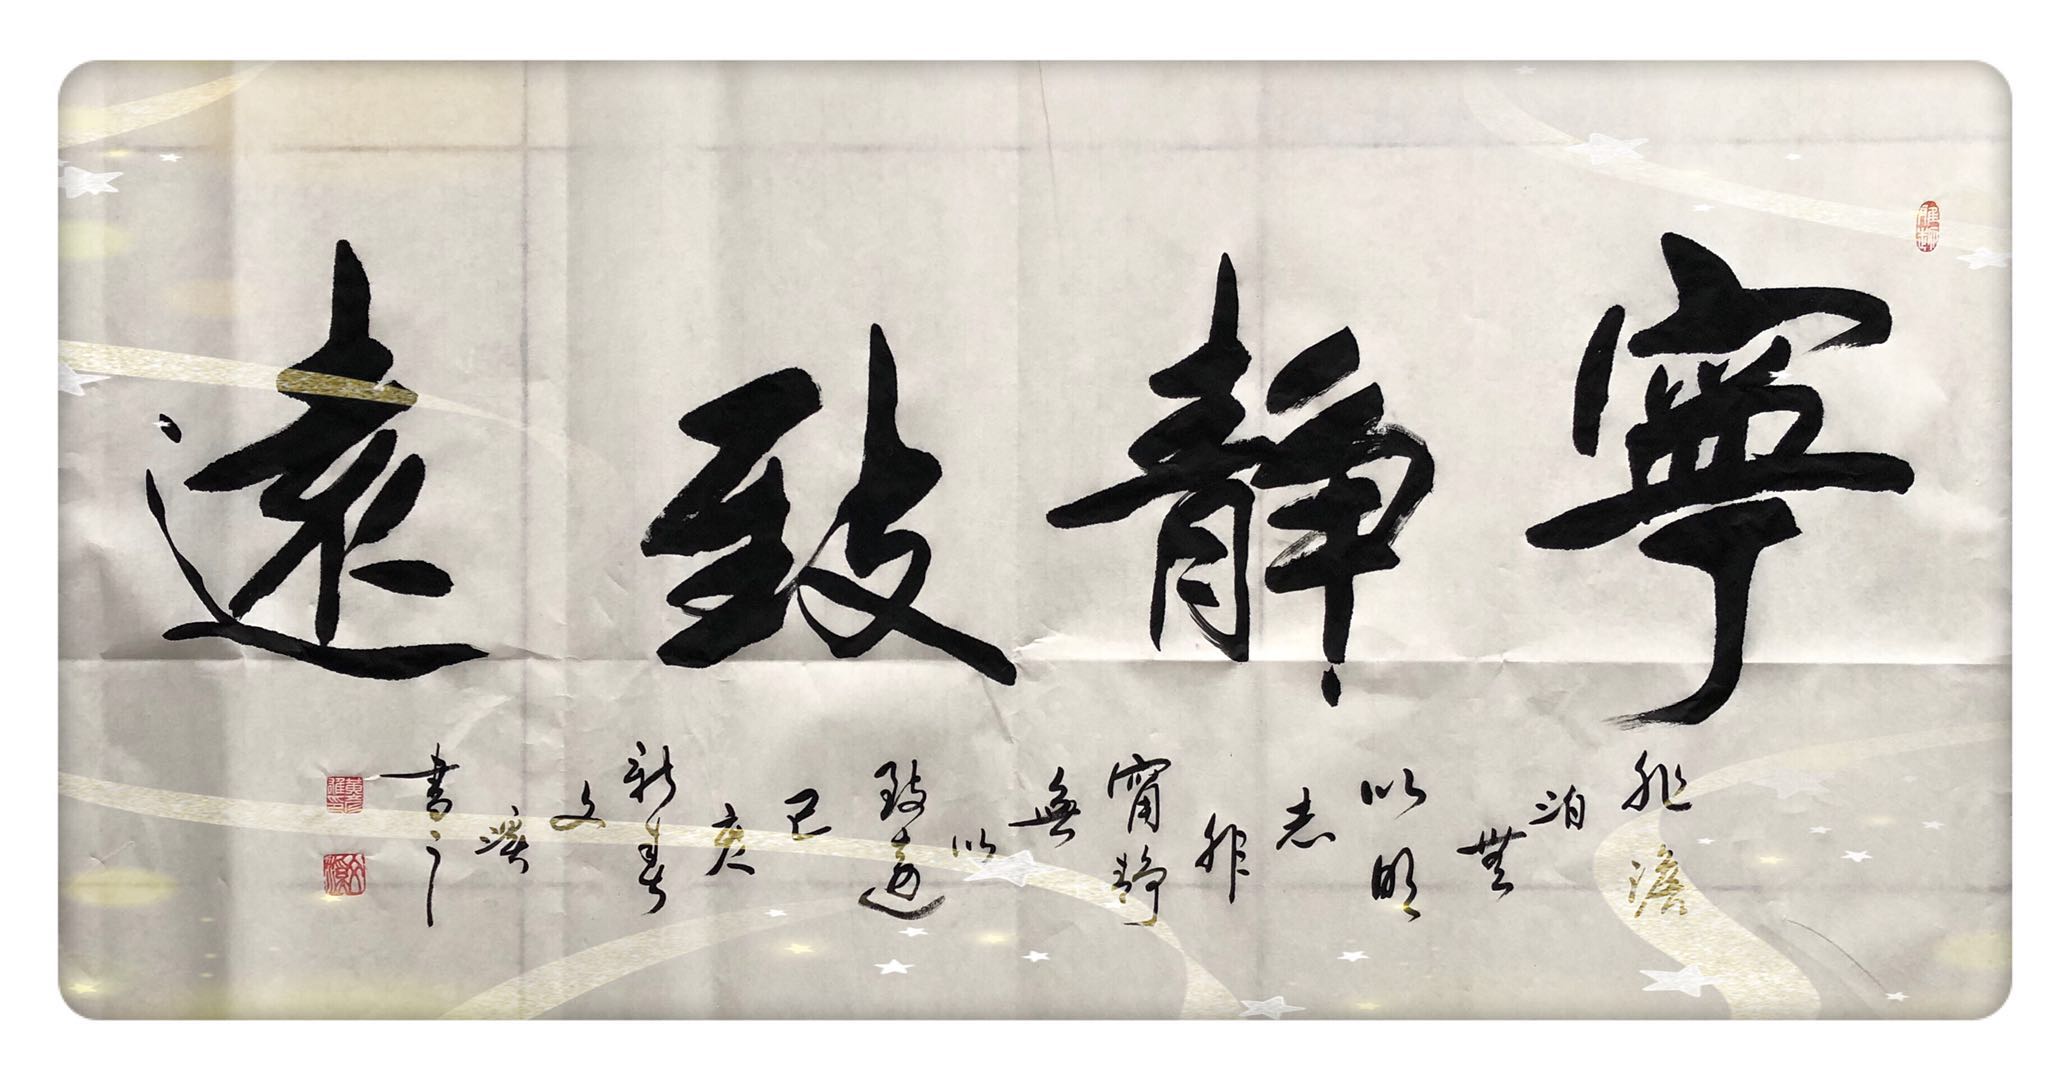 寧靜致遠
非澹泊無以明志非甯静無以致遠己亥新春文溪書